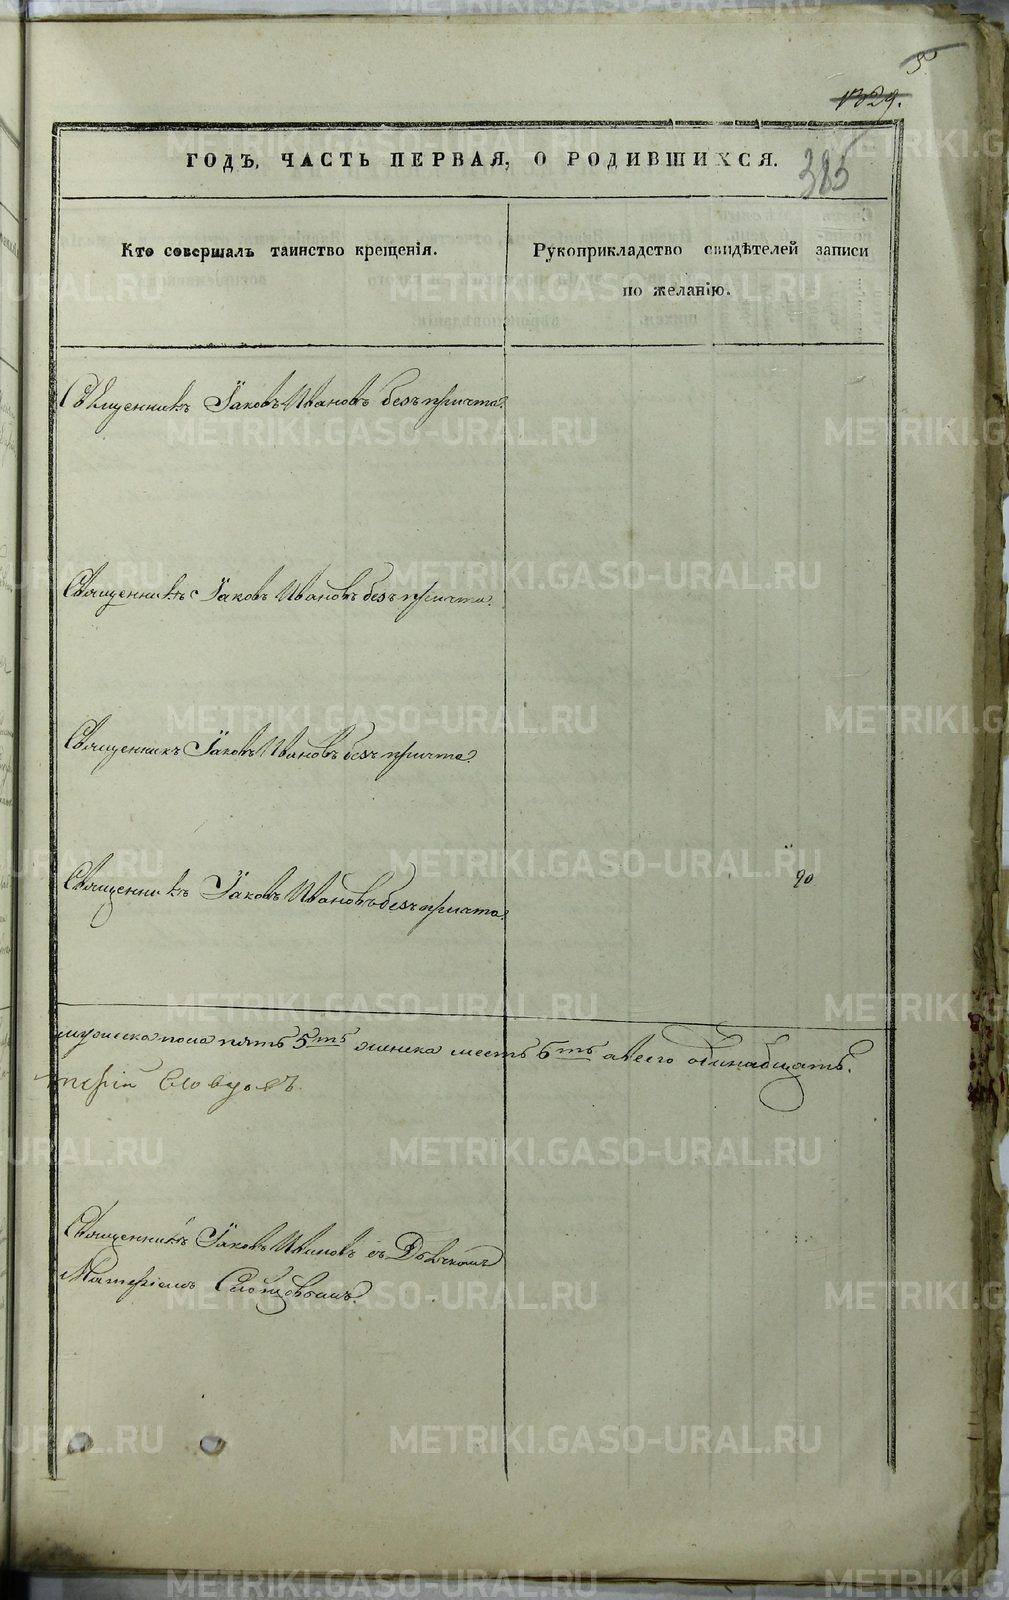 5
1329.
385
ГОДЪ, ЧАСТЬ ПЕРВАЯ, О РОДИВШИХСЯ.
Кто совершалъ таинство крещенія.
Рукоприкладство свидѣтелей записи
по желанію.
Священникъ Іаковъ Ивановъ безъ причта.
Священникъ Іаковъ Ивановъ безъ причта.
Священникъ Іаковъ Ивановъ безъ причта.
Священникъ Іаковъ Ивановъ безъ причта.
90
мужеска пола пять 5ть женска шесть 6ть а всего одинадцать.
Священникъ Іаковъ Ивановъ съ Дьячкомъ
Матѳіемъ Словцовымъ.
METRIKI.GASO-URAL.RU